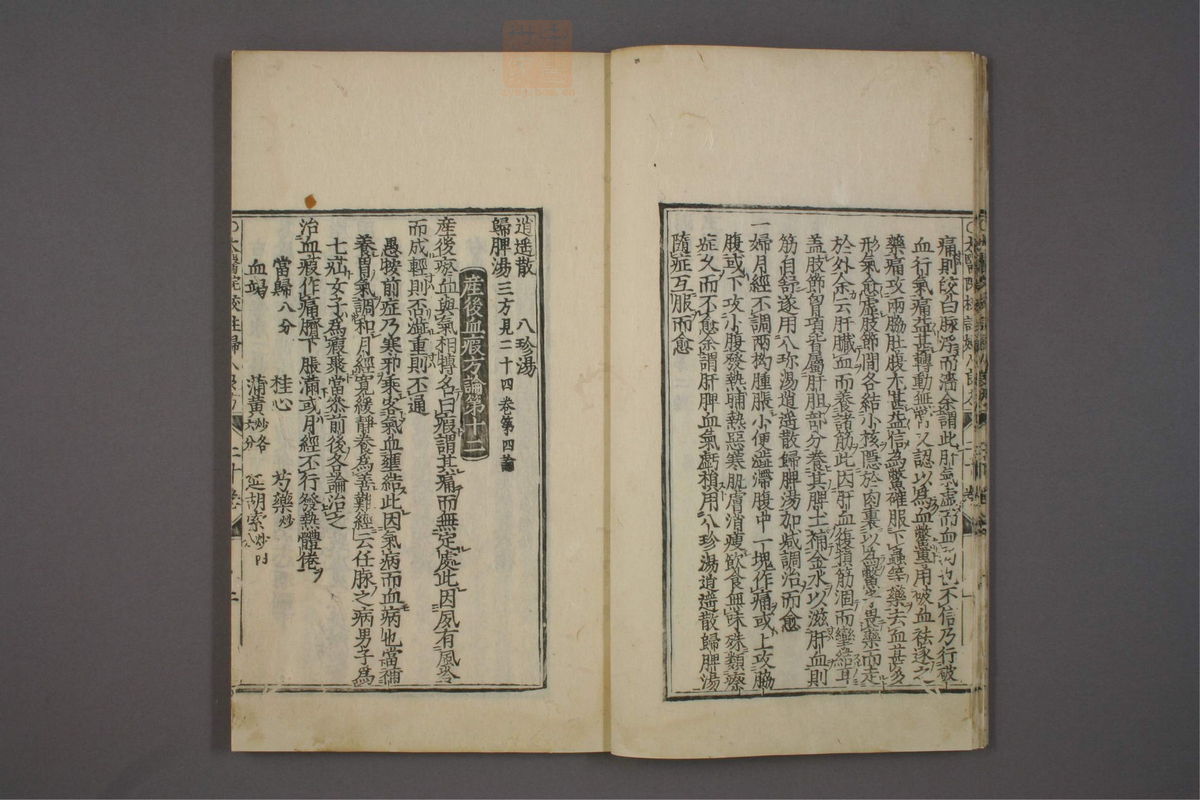 痛則皎白脉浮而濇余謂此肝氣虛而血
也不信乃行破
血行氣痛益甚轉動無常又認以爲血鱉
專用破血祛逐之
藥痛攻兩脇肚腹尤甚益信爲鱉確服下蟲等藥去血甚多
形氣愈虛肢節間各結小核隱於肉裏以爲鱉子畏藥而走
於外余云肝臟血而養諸筋此因肝血復損筋涸而攣結耳
蓋肢節胷項皆屬肝胆部分養其脾土補金水以滋肝血則
筋自舒遂用八珍湯逍遥散歸脾湯加減調治而愈
一婦月經不調兩拗腫脹小便澁滯腹中一塊作痛或上攻脇
腹或下攻小腹發熱晡熱惡寒肌膚消瘦飲食無味殊類瘵
症久而不愈余謂肝脾血氣虧損用八珍湯逍遥散歸脾湯
隨症互服而愈
逍遥散　八珍湯
歸脾湯三方見二十四卷第四論
産後血瘕方論第十二
産後瘀血與氣相搏名曰瘕謂其痛而無定處此因夙有風冷
而成輕則否澁重則不通
愚按前症乃寒邪乘客氣血壅結此因氣病而血病也當補
養胃氣調和月經寬緩靜養爲善難經云任脉之病男子爲
七疝女子爲瘕聚當叅前後各論治之
治血瘕作痛臍下脹滿或月經不行發熱體倦
當歸八分　桂心　芍藥炒
血竭　蒲黄炒各六分　延胡索炒